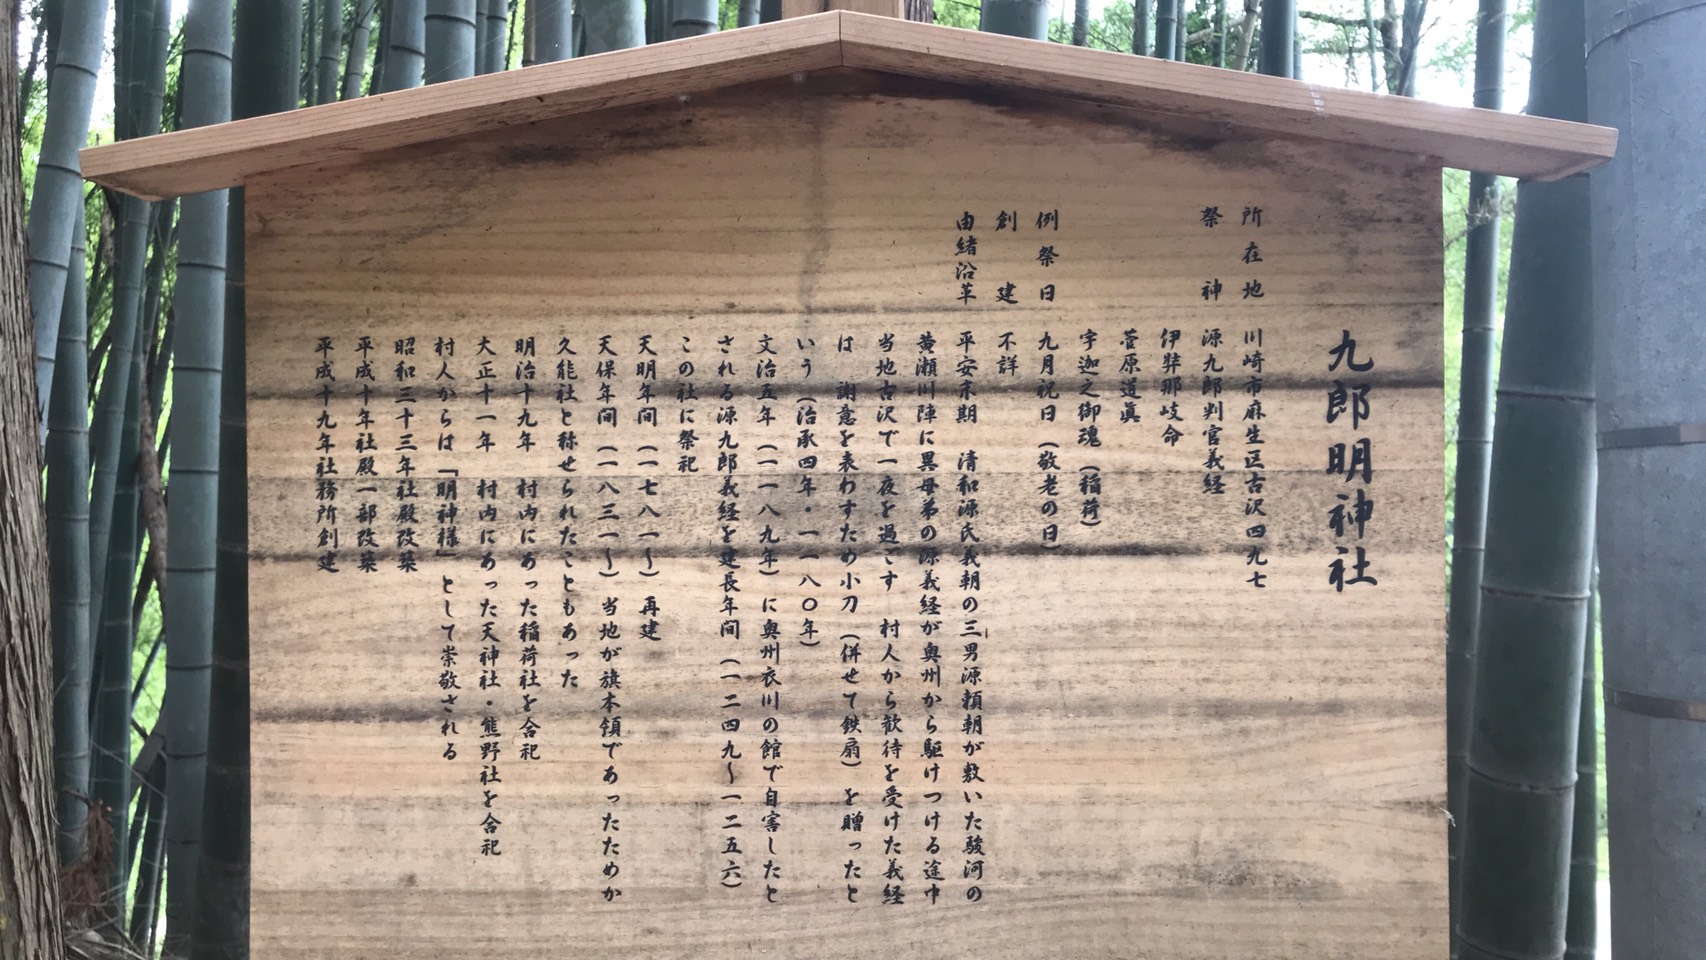 九郎明神社
所在地 川崎市麻生区古沢四九七
祭神 源九郎判官義経
伊弉那岐命
菅原道眞
宇迦之御魂(稲荷)
例祭日 九月祝日(敬老の日)
創建 不詳
由緒沿革 平安末期 清和源氏義朝の三男源頼朝が敷いた駿河の
黄瀬川陣に異母弟の源義経が奥州から駆けつける途中
当地古沢で一夜を過ごす 村人から歓待を受けた義経
は 謝意を表わすため小刀(併せて鉄扇)を贈ったと
いう(治承四年・一一八〇年)
文治五年(一一八九年)に奥州衣川の館で自害したと
される源九郎義経を建長年間(一二四九~一二五六)
この社に祭祀
天明年間(一七八一~)再建
天保年間(一八三一~)当地が旗本領であったためか
久能社と称せられたこともあった
明治十九年 村内にあった稲荷社を合祀
大正十一年 村内にあった天神社・熊野社を合祀
村人からは「明神様」として崇敬される
昭和三十三年社殿改築
平成十年社殿一部改築
平成十九年社務所創建